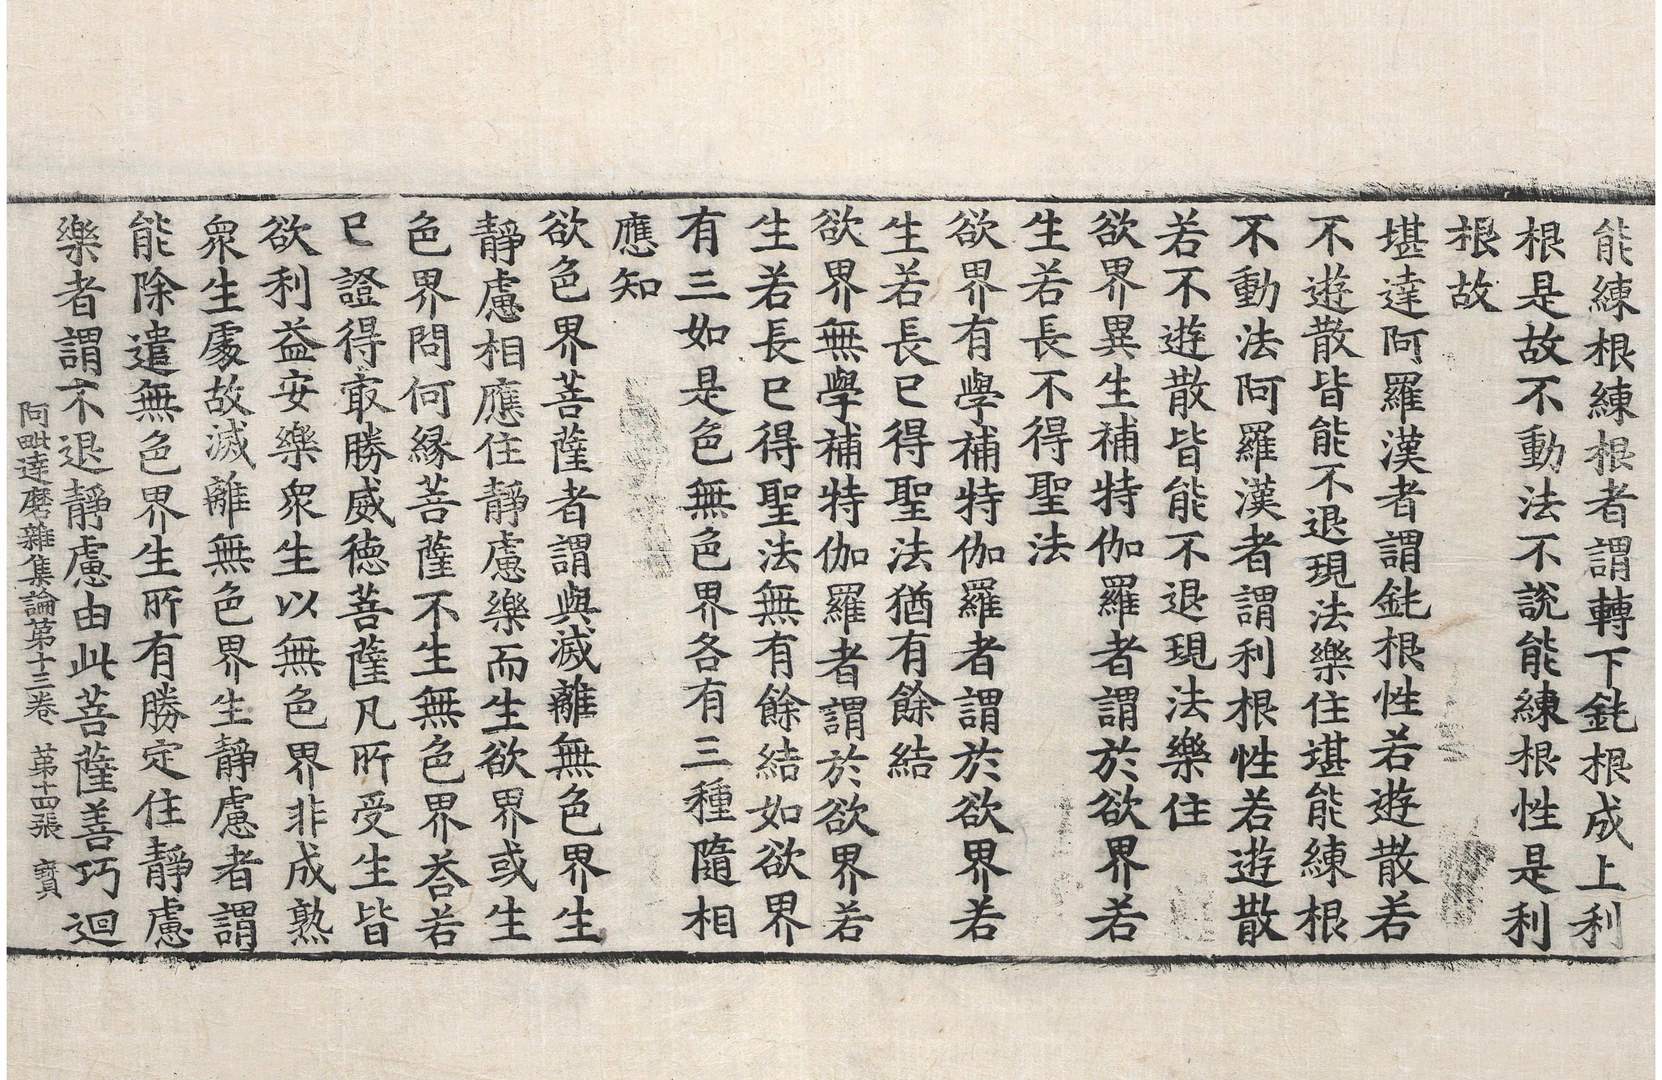 能練根練根者謂轉下鈍根成上利
根是故不動法不說能練根性是利
根故
堪達阿羅漢者謂鈍根性若遊散若
不遊散皆能不退現法樂住堪能練根
不動法阿羅漢者謂利根性若遊散
若不遊散皆能不退現法樂住
欲界異生補特伽羅者謂於欲界若
生若長不得聖法
欲界有學補特伽羅者謂於欲界若
生若長已得聖法猶有餘結
欲界無學補特伽羅者謂於欲界若
生若長已得聖法無有餘結如欲界
有三如是色無色界各有三種隨相
應知
欲色界菩薩者謂與滅離無色界生
靜慮相應住靜慮樂而生欲界或生
色界問何緣菩薩不生無色界荅若
已證得㝡勝威德菩薩凡所受生皆
欲利益安樂衆生以無色界非成熟
衆生處故滅離無色界生靜慮者謂
能除遣無色界生所有勝定住靜慮
樂者謂不退靜慮由此菩薩善巧迴
阿毗達磨雜集論第十三卷 第十四張 寶